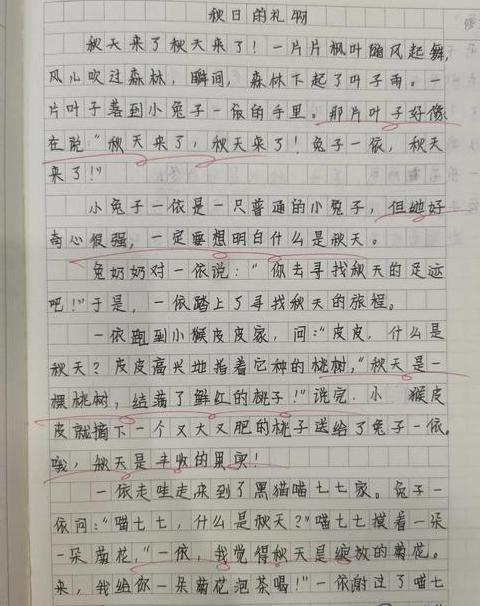 秋日的礼物
秋天来了秋天来了！一片片枫叶随风起舞,
风儿吹过森林，瞬间，森林下起了叶子雨。一
片叶子落到小兔子一依的手里。那片叶子好像
在说:"秋天来了，秋天来了！兔子一依，秋天
来了!"
小兔子一依是一只普通的小兔子，但她好
奇心很强，一定要想明白什么是秋天。
兔奶奶对一依说："你去寻找秋天的足迹
吧!"于是，一依踏上了寻找秋天的旅程。
一依跑到小猴皮皮家，问:"皮皮，什么是
秋天？皮皮高兴地指着它种的桃树,"秋天是一
棵桃树，结满了鲜红的桃子!"说完.小猴皮
皮就摘下一个又大又肥的桃子送给了兔子一依.
哦，秋天是丰收的果实！
一依走哇走来到了黑猫喵七七家。兔子一
依问:"喵七七，什么是秋天?"喵七七摸着一朵
一朵菊花,"一依，我觉得秋天是绽放的菊花。
来，我给你一朵菊花泡茶喝!"一依谢过了喵七